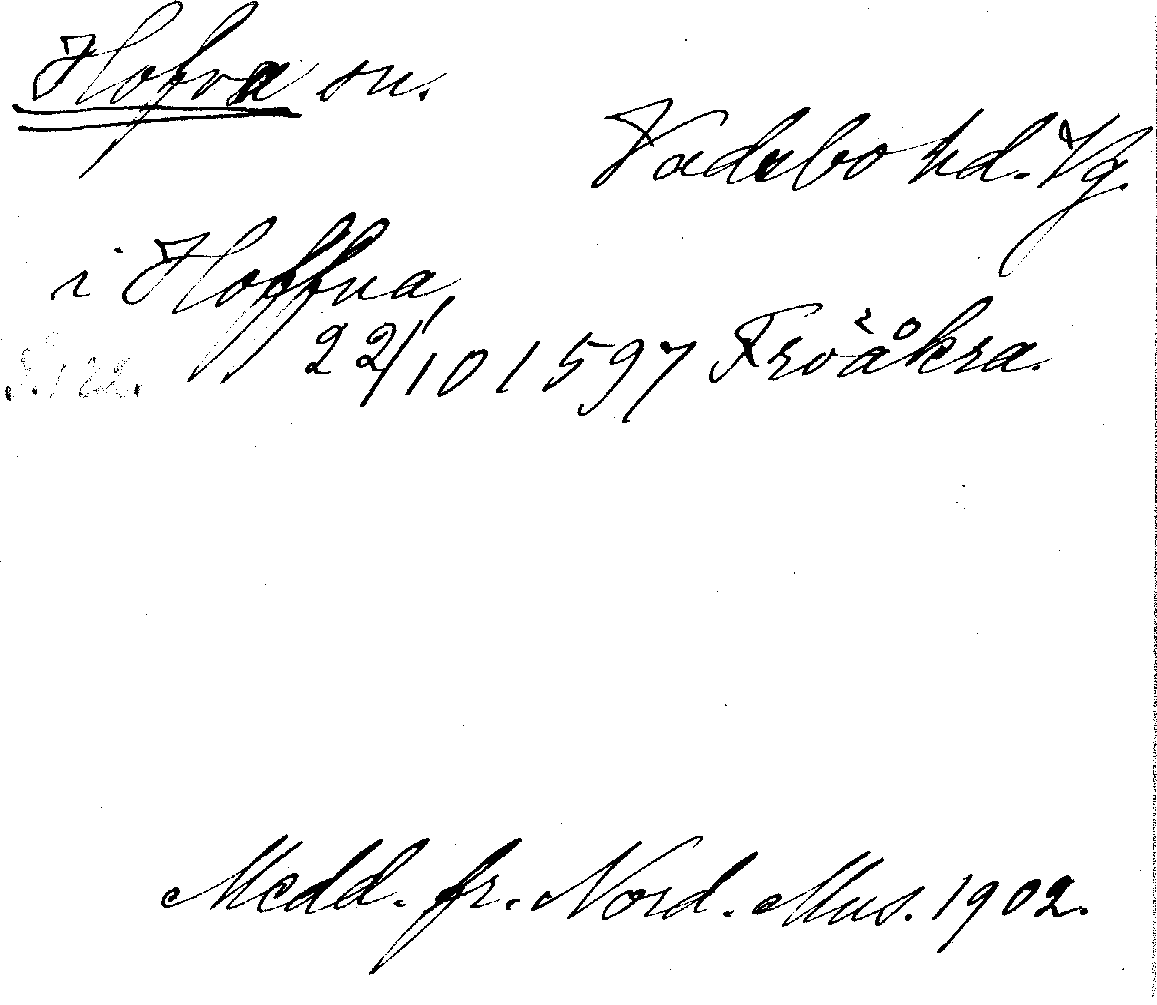 Hofva sn.
Vadsbo hd. Vg.
i Hoffua,
22/10 1597 Froåkra.
S. 122.
Medd. fr. Nord. Mus. 1902.